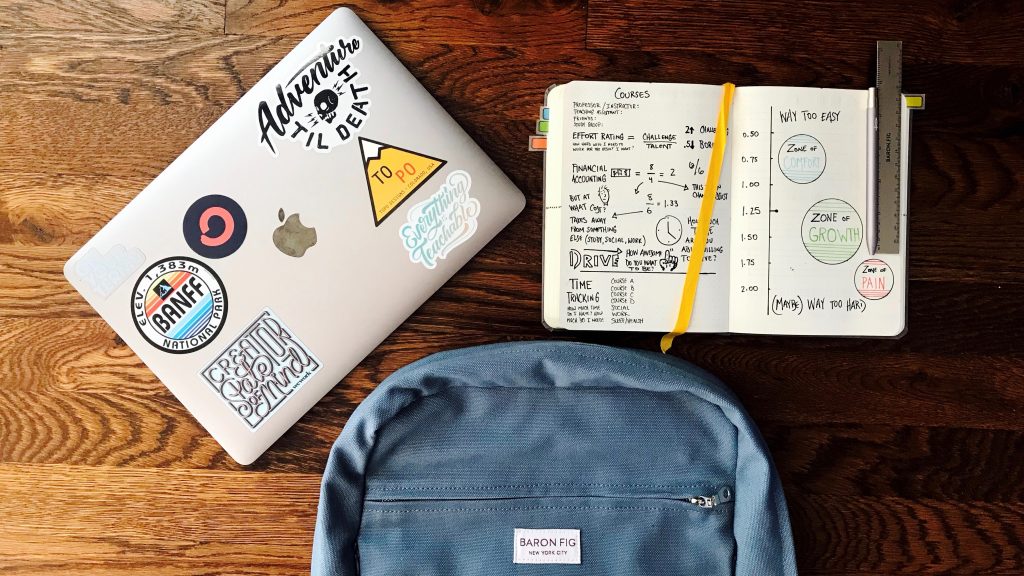 Adventure
TIL DEATH
TO
PO
Everything
Teachable
ELEV. 1,383m
BANFF
NATIONAL PARK
CREATOR
State
of Mind
COURSES
PROFESSOR / INSTRUCTOR:
TEACHING ASSISTANT:
FRIENDS:
STUDY GROUP:
EFFORT RATING = CHALLENGE
TALENT
FINANCIAL
ACCOUNTING
= 8
4
= 2
6/6
BUT AT
WHAT COST?
8
6
= 1.33
TAKES AWAY
FROM SOMETHING
ELSE (STUDY, SOCIAL, WORK)
DRIVE
HOW AWESOME
DO YOU WANT
TO BE?
TIME
TRACKING
HOW MUCH TIME
DO I HAVE? HOW
MUCH DO I NEED?
COURSE A
COURSE B
COURSE C
COURSE D
SOCIAL
WORK
SLEEP/HEALTH
WAY TOO EASY
0.50
0.75
1.00
1.25
1.50
1.75
2.00
ZONE OF
COMFORT
ZONE OF
GROWTH
ZONE OF
PAIN
(MAYBE) WAY TOO HARD
BARON FIG
BARON FIG
NEW YORK CITY